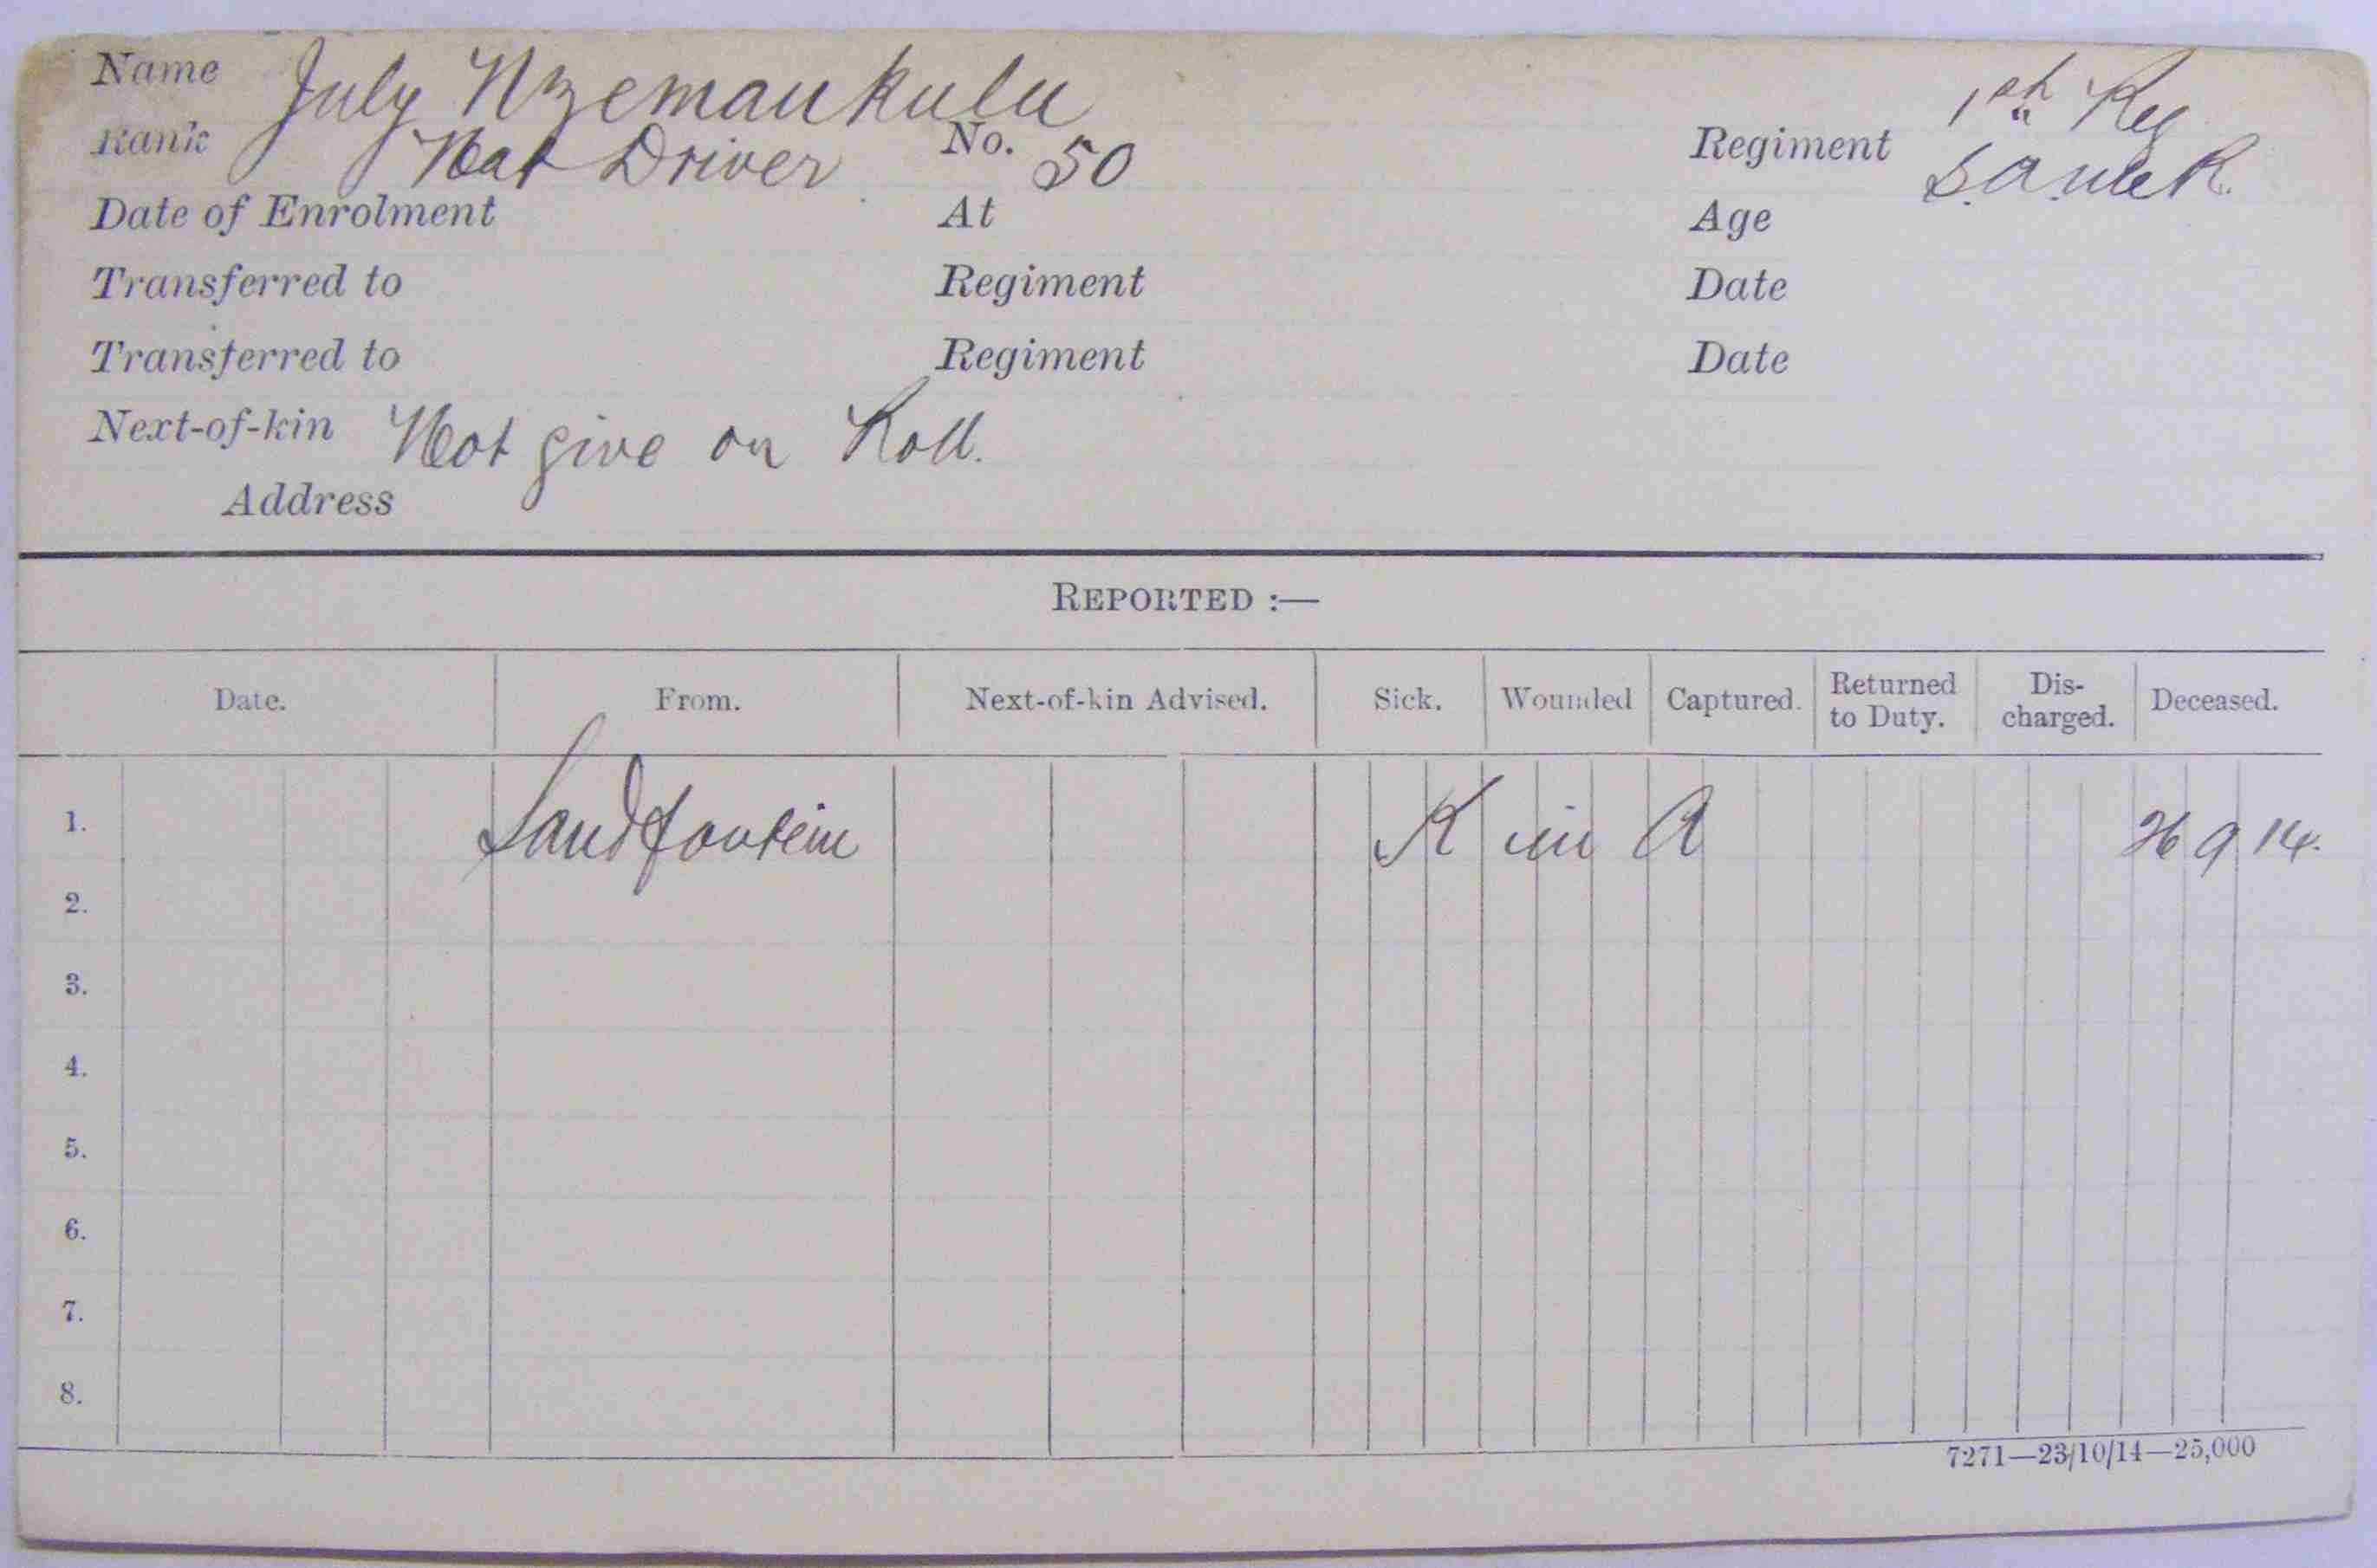 Name July Nzemankulu
Rank Nat Driver No. 50 Regiment 1st Reg S.A.M.R.
Date of Enrolment At Age
Transferred to Regiment Date
Transferred to Regiment Date
Next-of-kin Not give on Roll.
Address
REPORTED :—
Date. From. Next-of-kin Advised. Sick. Wounded Captured. Returned to Duty. Dis-charged. Deceased.
1. Sandfontein K in A 26 9 14.
2.
3.
4.
5.
6.
7.
8.
7271—23/10/14—25,000